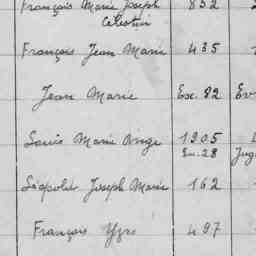 François Marie Joseph 852
Célestin
François Jean Marie 435
Jean Marie Ex. 82 Ev
Louis Marie Ange 1905
Ex. 28 Jug
Léopold Joseph Marie 162
François Yves 497